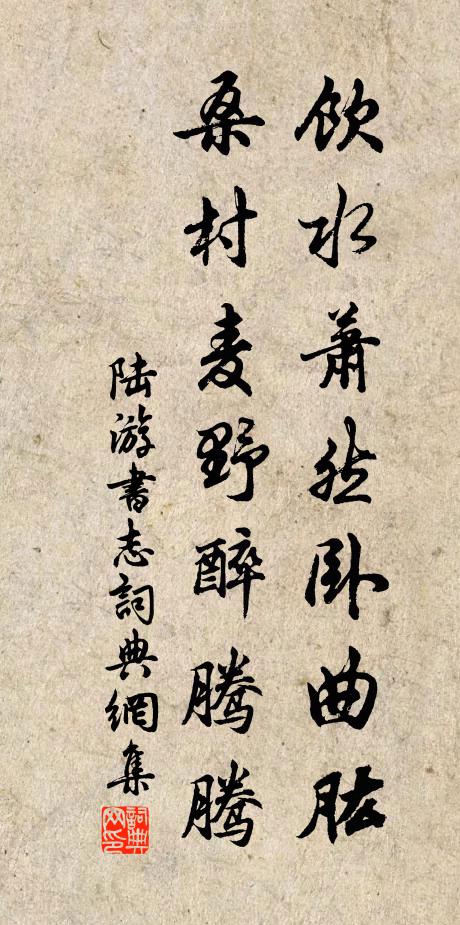 飲水蕭然卧曲肱
桑村麦野醉騰騰
陸游書志詞典網集
詞典
网印